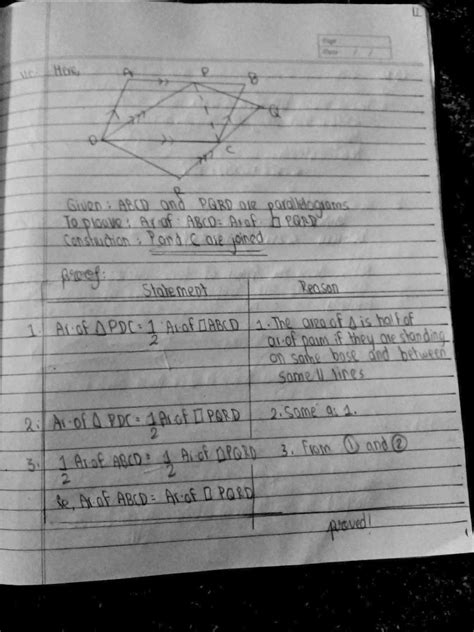 12
Page
Date / /
Here,
A P B
Q
D C
R
Given: ABCD and PQRD are parallelograms
To prouve: Ar.of ABCD= Ar.of □ PQRD
Construction: P and C are joined
proof:
Statement Reason
1. Ar.of △PDC= 1/2 Ar.of □ABCD 1. The area of △ is half of
ar.of parm if they are standing
on same base and between
same || lines
2. Ar.of △ PDC= 1/2 Ar.of □PQRD 2. Same as 1.
3. 1/2 Ar.of ABCD= 1/2 Ar.of □PQRD 3. From ① and ②
So, Ar.of ABCD= Ar.of □ PQRD
proved!